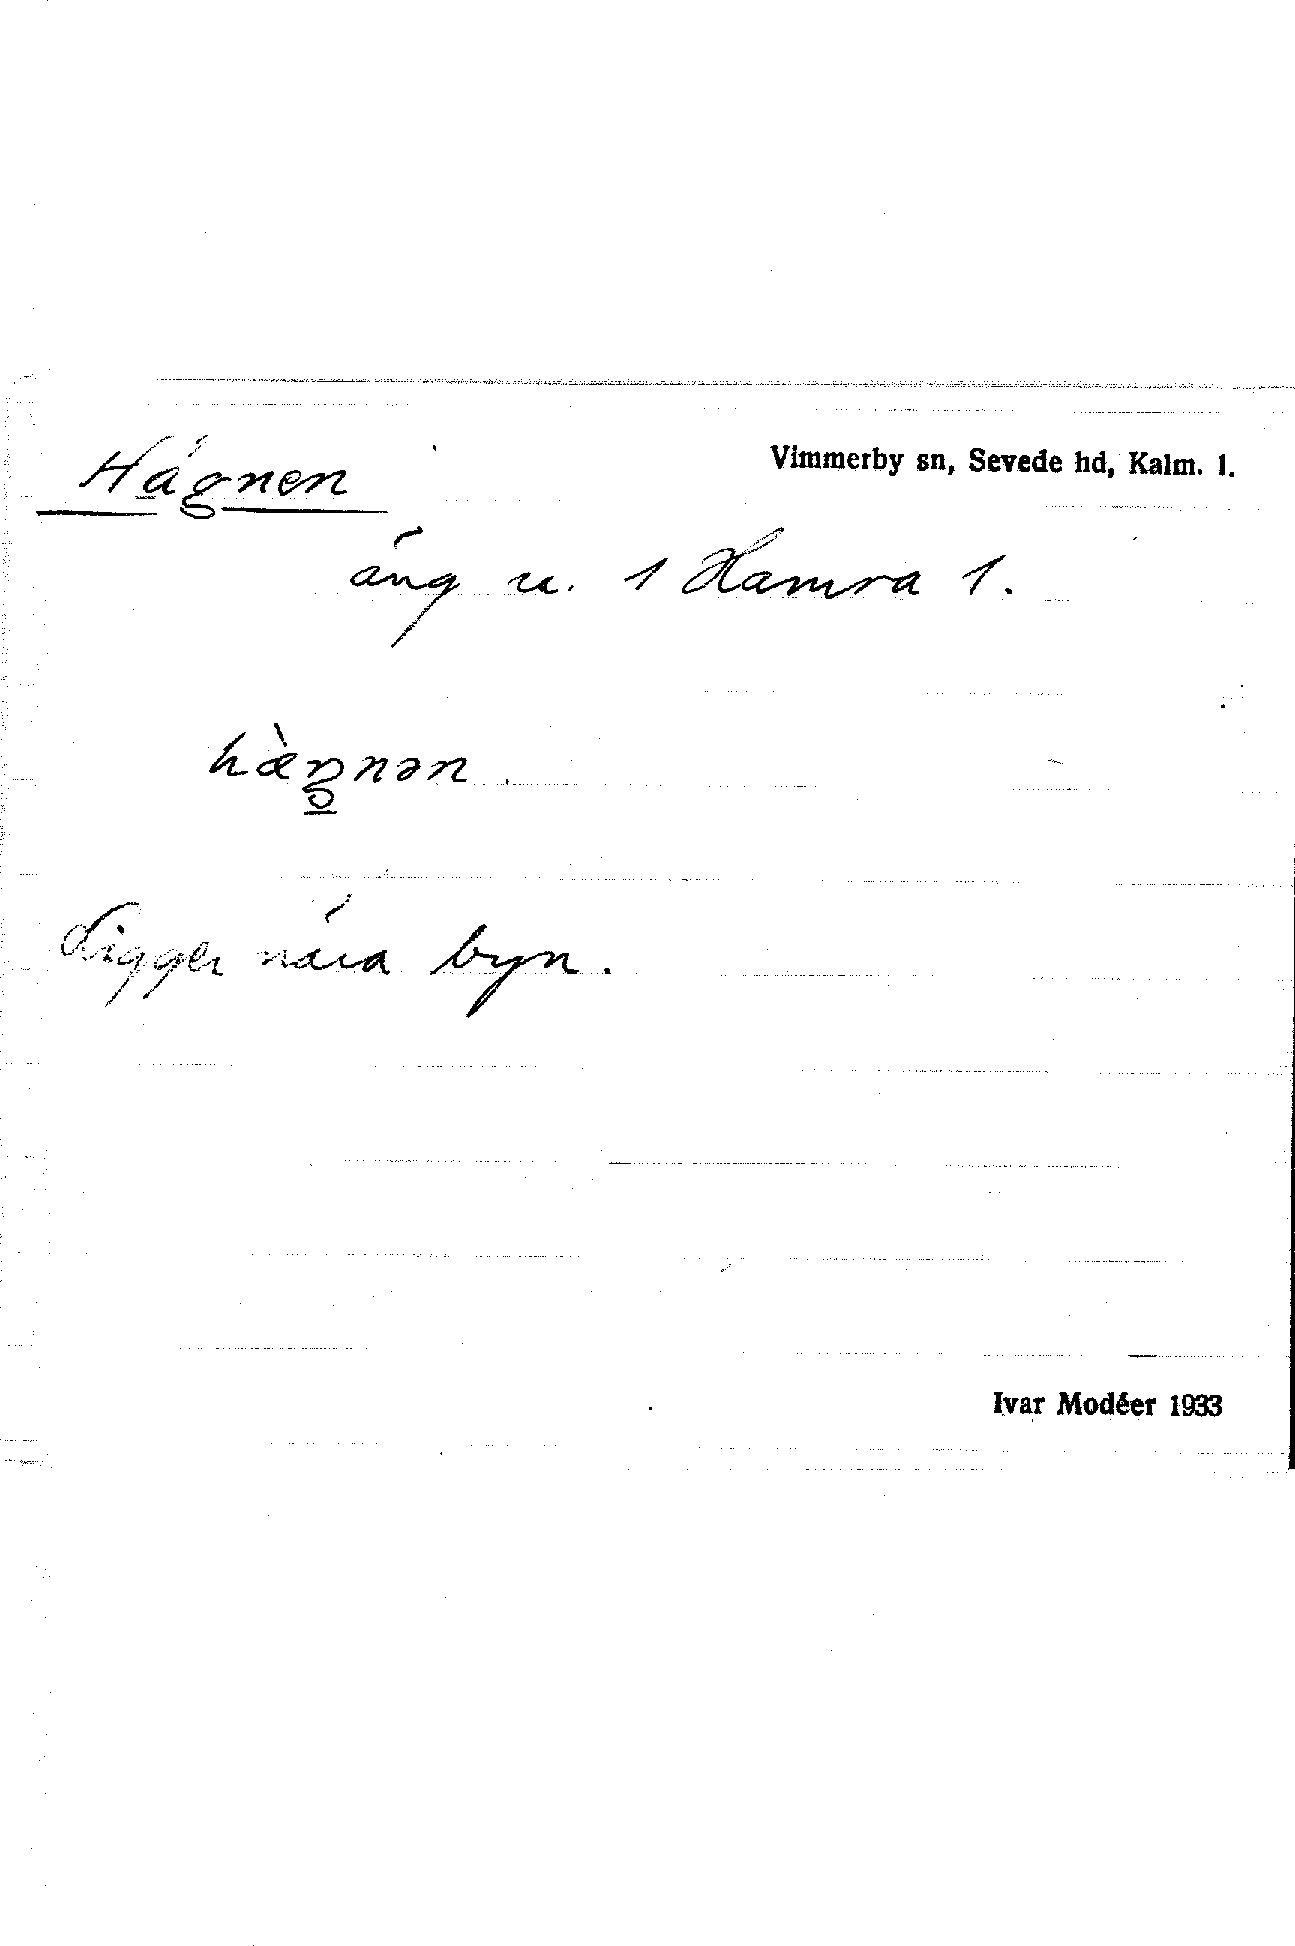 Hägnen
Vimmerby sn, Sevede hd, Kalm. l.
äng u. 1 Hamra 1.
hæ̀ŋnən.
Ligger nära byn.
Ivar Modéer 1933